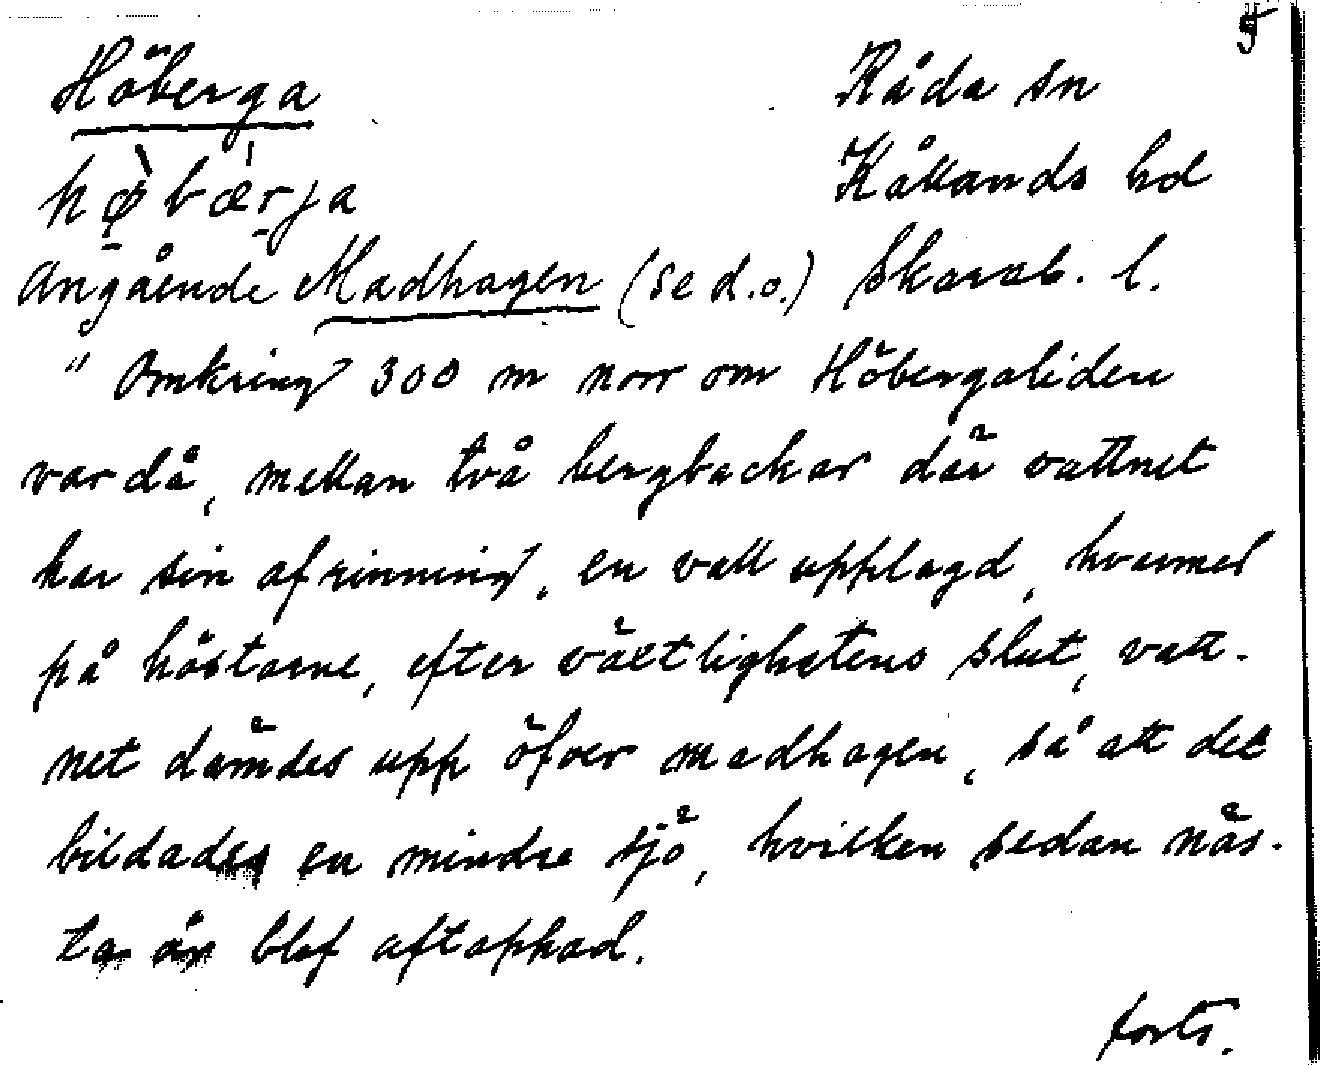 5
Höberga Råda sn
hø̀bæ̍rja Kållands hd
Angående Madhagen (se d.o.) Skarab. l.
"Omkring 300 m norr om Höbergaliden
var då, mellan två bergbackar där vattnet
har sin afrinning, en vall upplagd, hvarmed
på höstarne, efter växtlighetens slut, vatt-
net dämdes upp öfver madhagen, så att det
bildades en mindre sjö, hvilken sedan näs-
ta år blef aftappad.
forts.